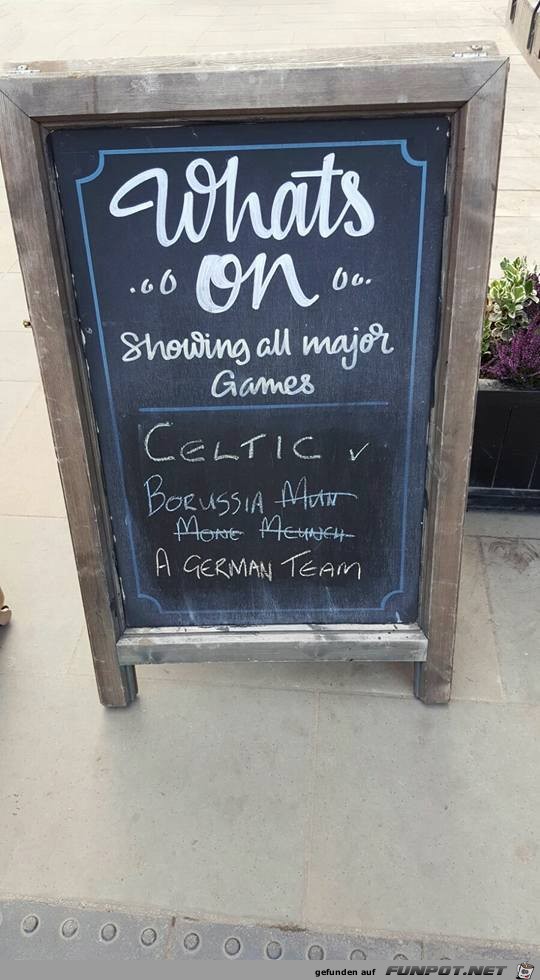 Whats
on
Showing all major
Games
CELTIC ✓
BORUSSIA MUN
MONC MEUNCH
A GERMAN TEAM
gefunden auf FUNPOT.NET